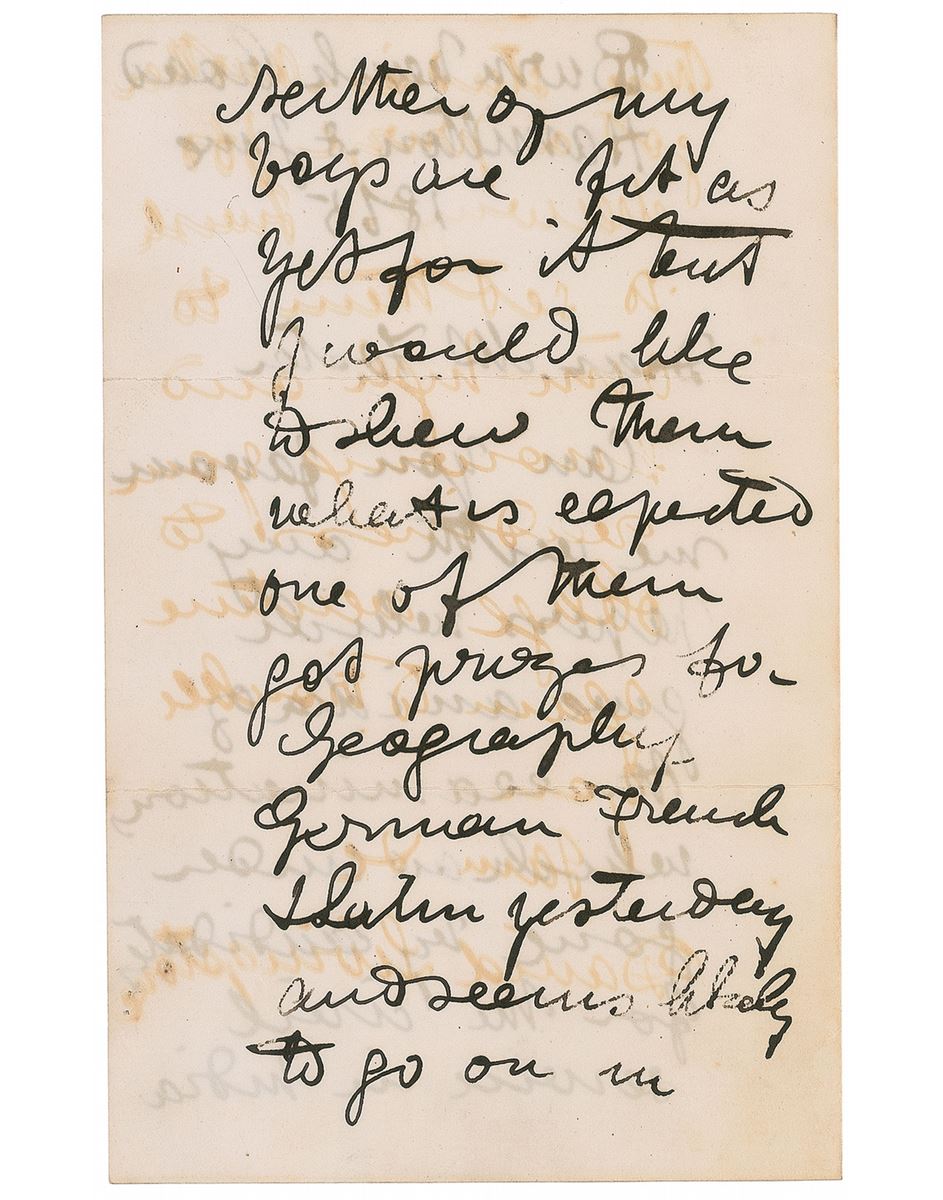 neither of my
boys are fit as
yet for it but
I would like
to shew them
what is expected
one of them
got prizes for
Geography
German French
& Latin yesterday
and seems likely
to go on in